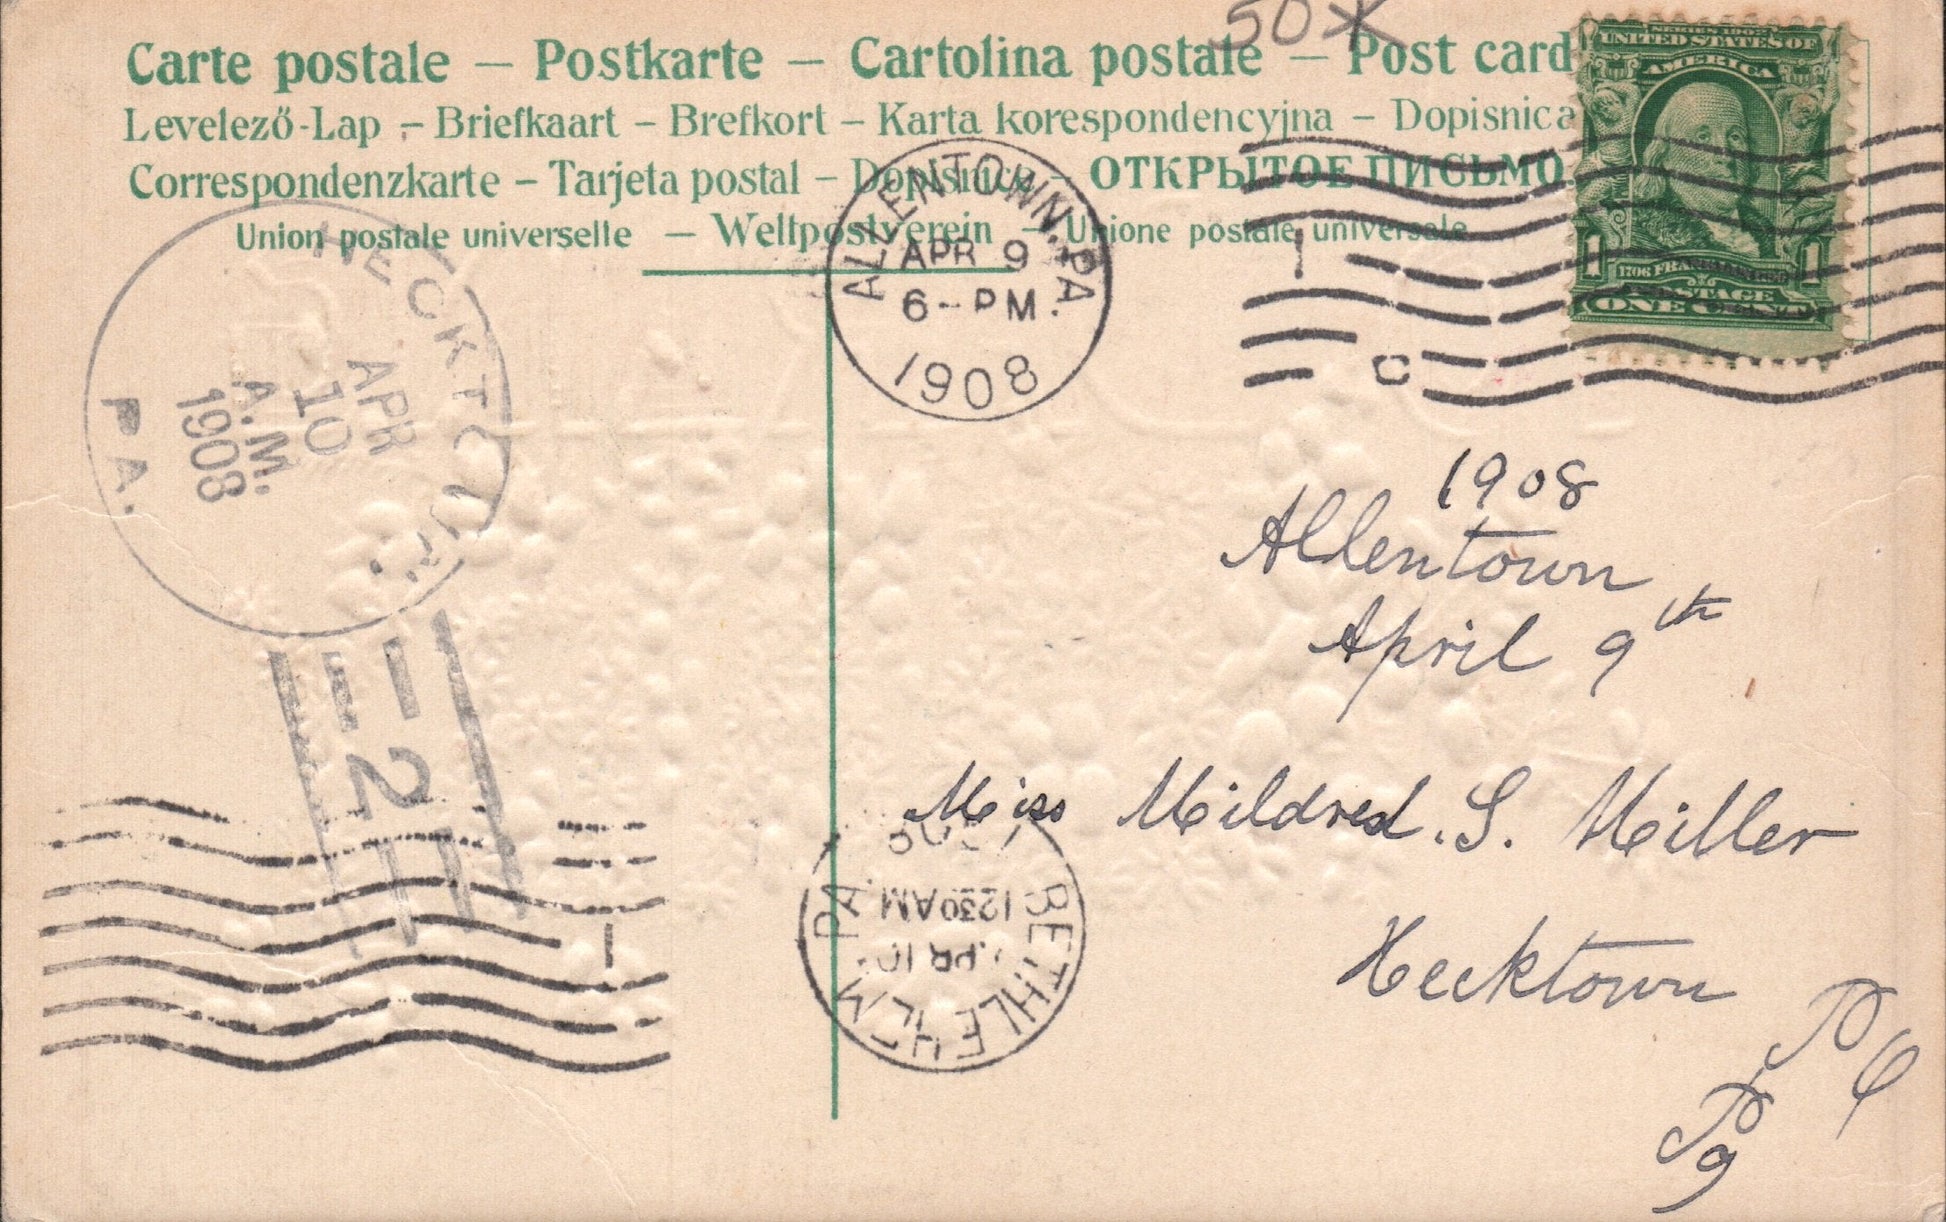 50*
Carte postale — Postkarte — Cartolina postale — Post card
Levelező-Lap — Briefkaart — Brefkort — Karta korespondencyjna — Dopisnica
Correspondenzkarte — Tarjeta postal — Dopisnice — ОТКРЫТОЕ ПИСЬМО.
Union postale universelle — Weltpostverein — Unione postale universale
SERIES 1902
UNITED STATES OF
AMERICA
1706 FRANKLIN 1790
POSTAGE
1 1
ONE CENT
ALLENTOWN, PA.
APR 9
6-PM
1908
1
C
HECKTOWN
APR
10
A.M.
1908
PA.
2
1908
Allentown
April 9th
Miss Mildred. S. Miller
Hecktown
Pa
BETHLEHEM PA.
APR 10
1230AM
1